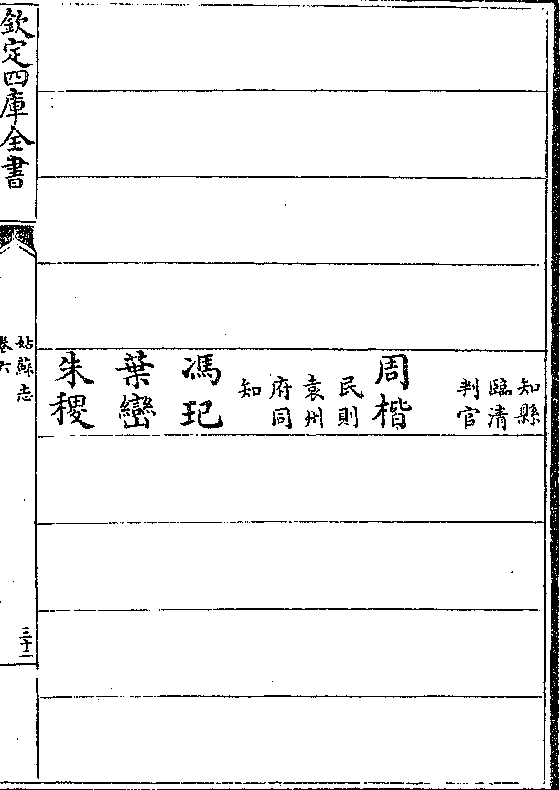 知縣
臨清
判官
周楷
民則
袁州
府同
知
馮玘
葉巒
朱稷
欽定四庫全書
姑蘇志
卷六
三十二